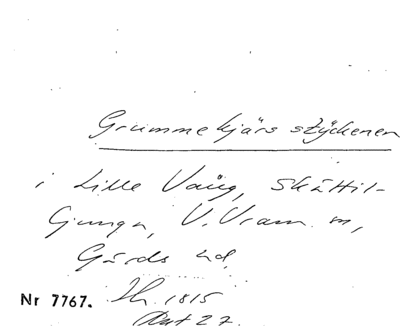 Grummekjärs stÿckenen
i Lille Vaÿg, Skÿttil-
Ljunga, V. Vram sn,
Gärds hd
Nr 7767. Hr. 1815
Akt 27.